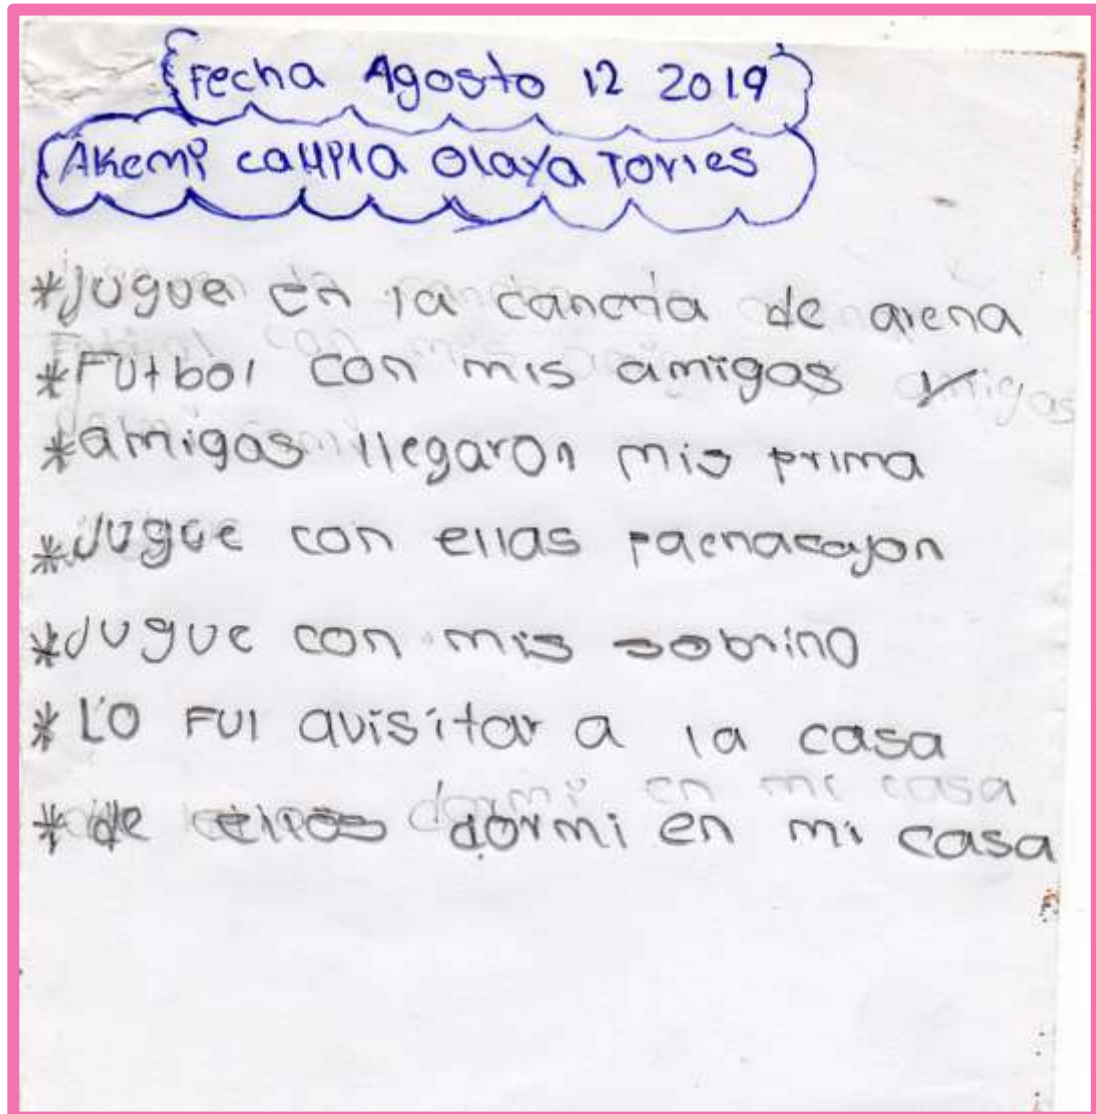 Fecha Agosto 12 2019
Akemi Olaya Torres
*Jugue en la cancha de arena
*Futbol con mis amigos y
*amigas llegaron mis prima
*Jugue con ellas
*Jugue con mis sobrino
*Lo Fui avisitar a la casa
*de ellos dormi en mi casa